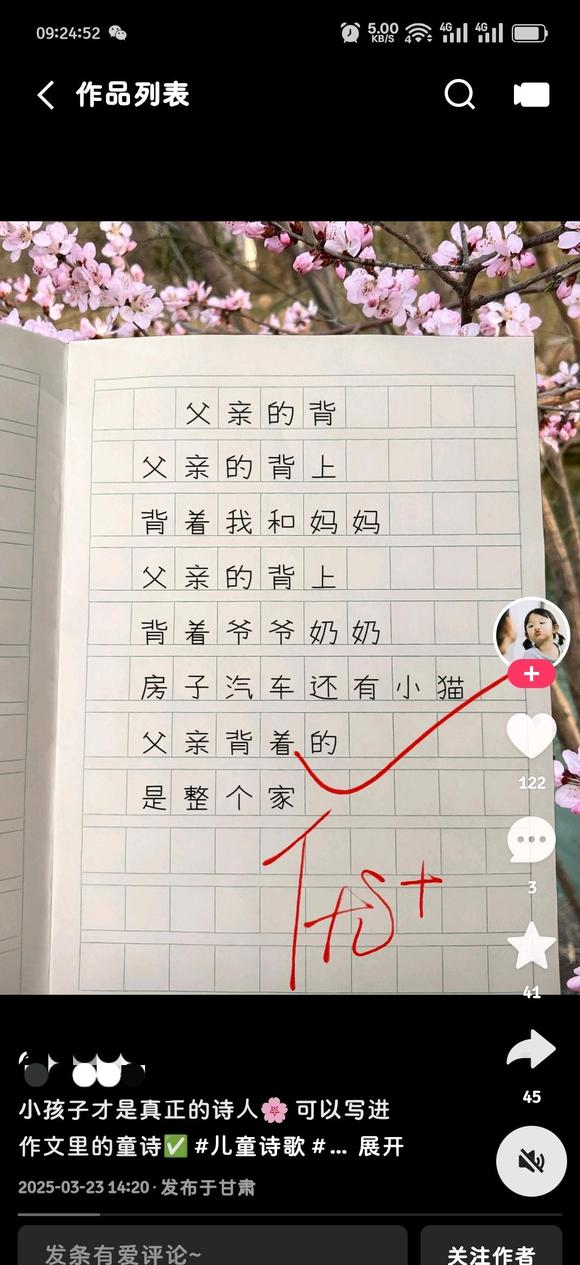 09:24:52
5.00 KB/S 4G 4G
作品列表
父亲的背
父亲的背上
背着我和妈妈
父亲的背上
背着爷爷奶奶
房子汽车还有小猫
父亲背着的
是整个家
优+
122
3
41
45
小孩子才是真正的诗人🌸 可以写进
作文里的童诗✅ #儿童诗歌 #... 展开
2025-03-23 14:20 · 发布于甘肃
发条有爱评论~
关注作者